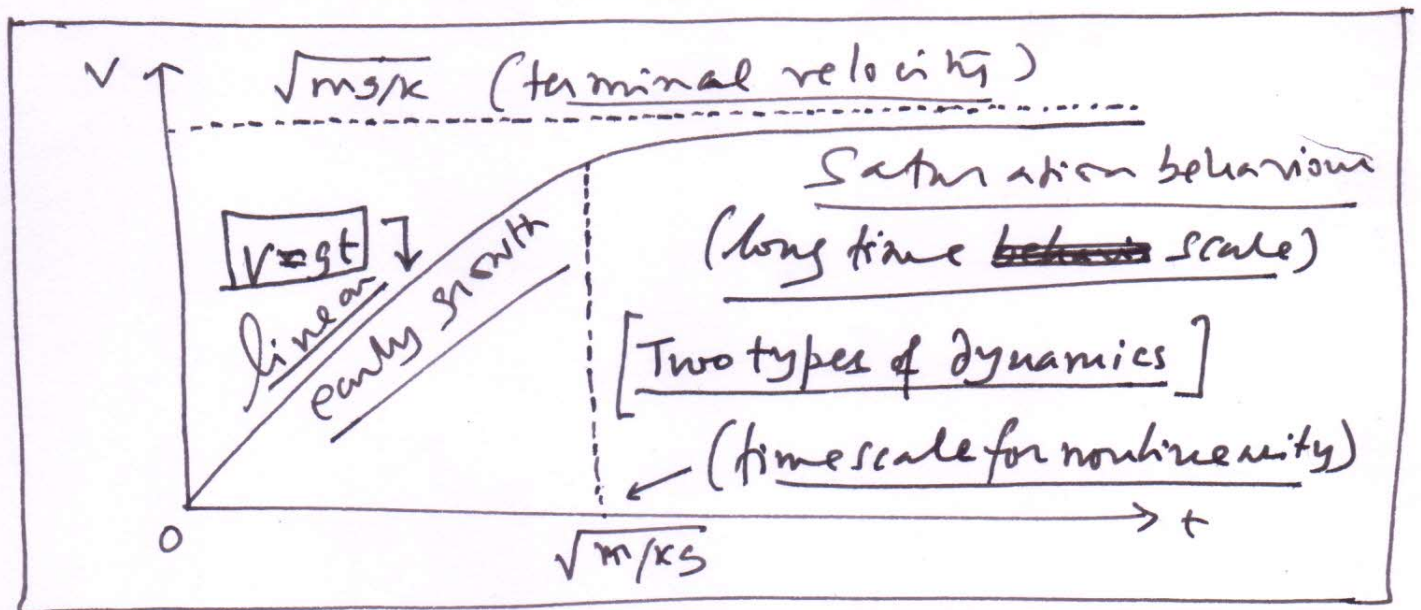 v
√mg/k (terminal velocity)
Saturation behaviour
v=gt
(long time scale)
linear
early growth
[Two types of dynamics]
(timescale for nonlinearity)
0
√m/kg
t